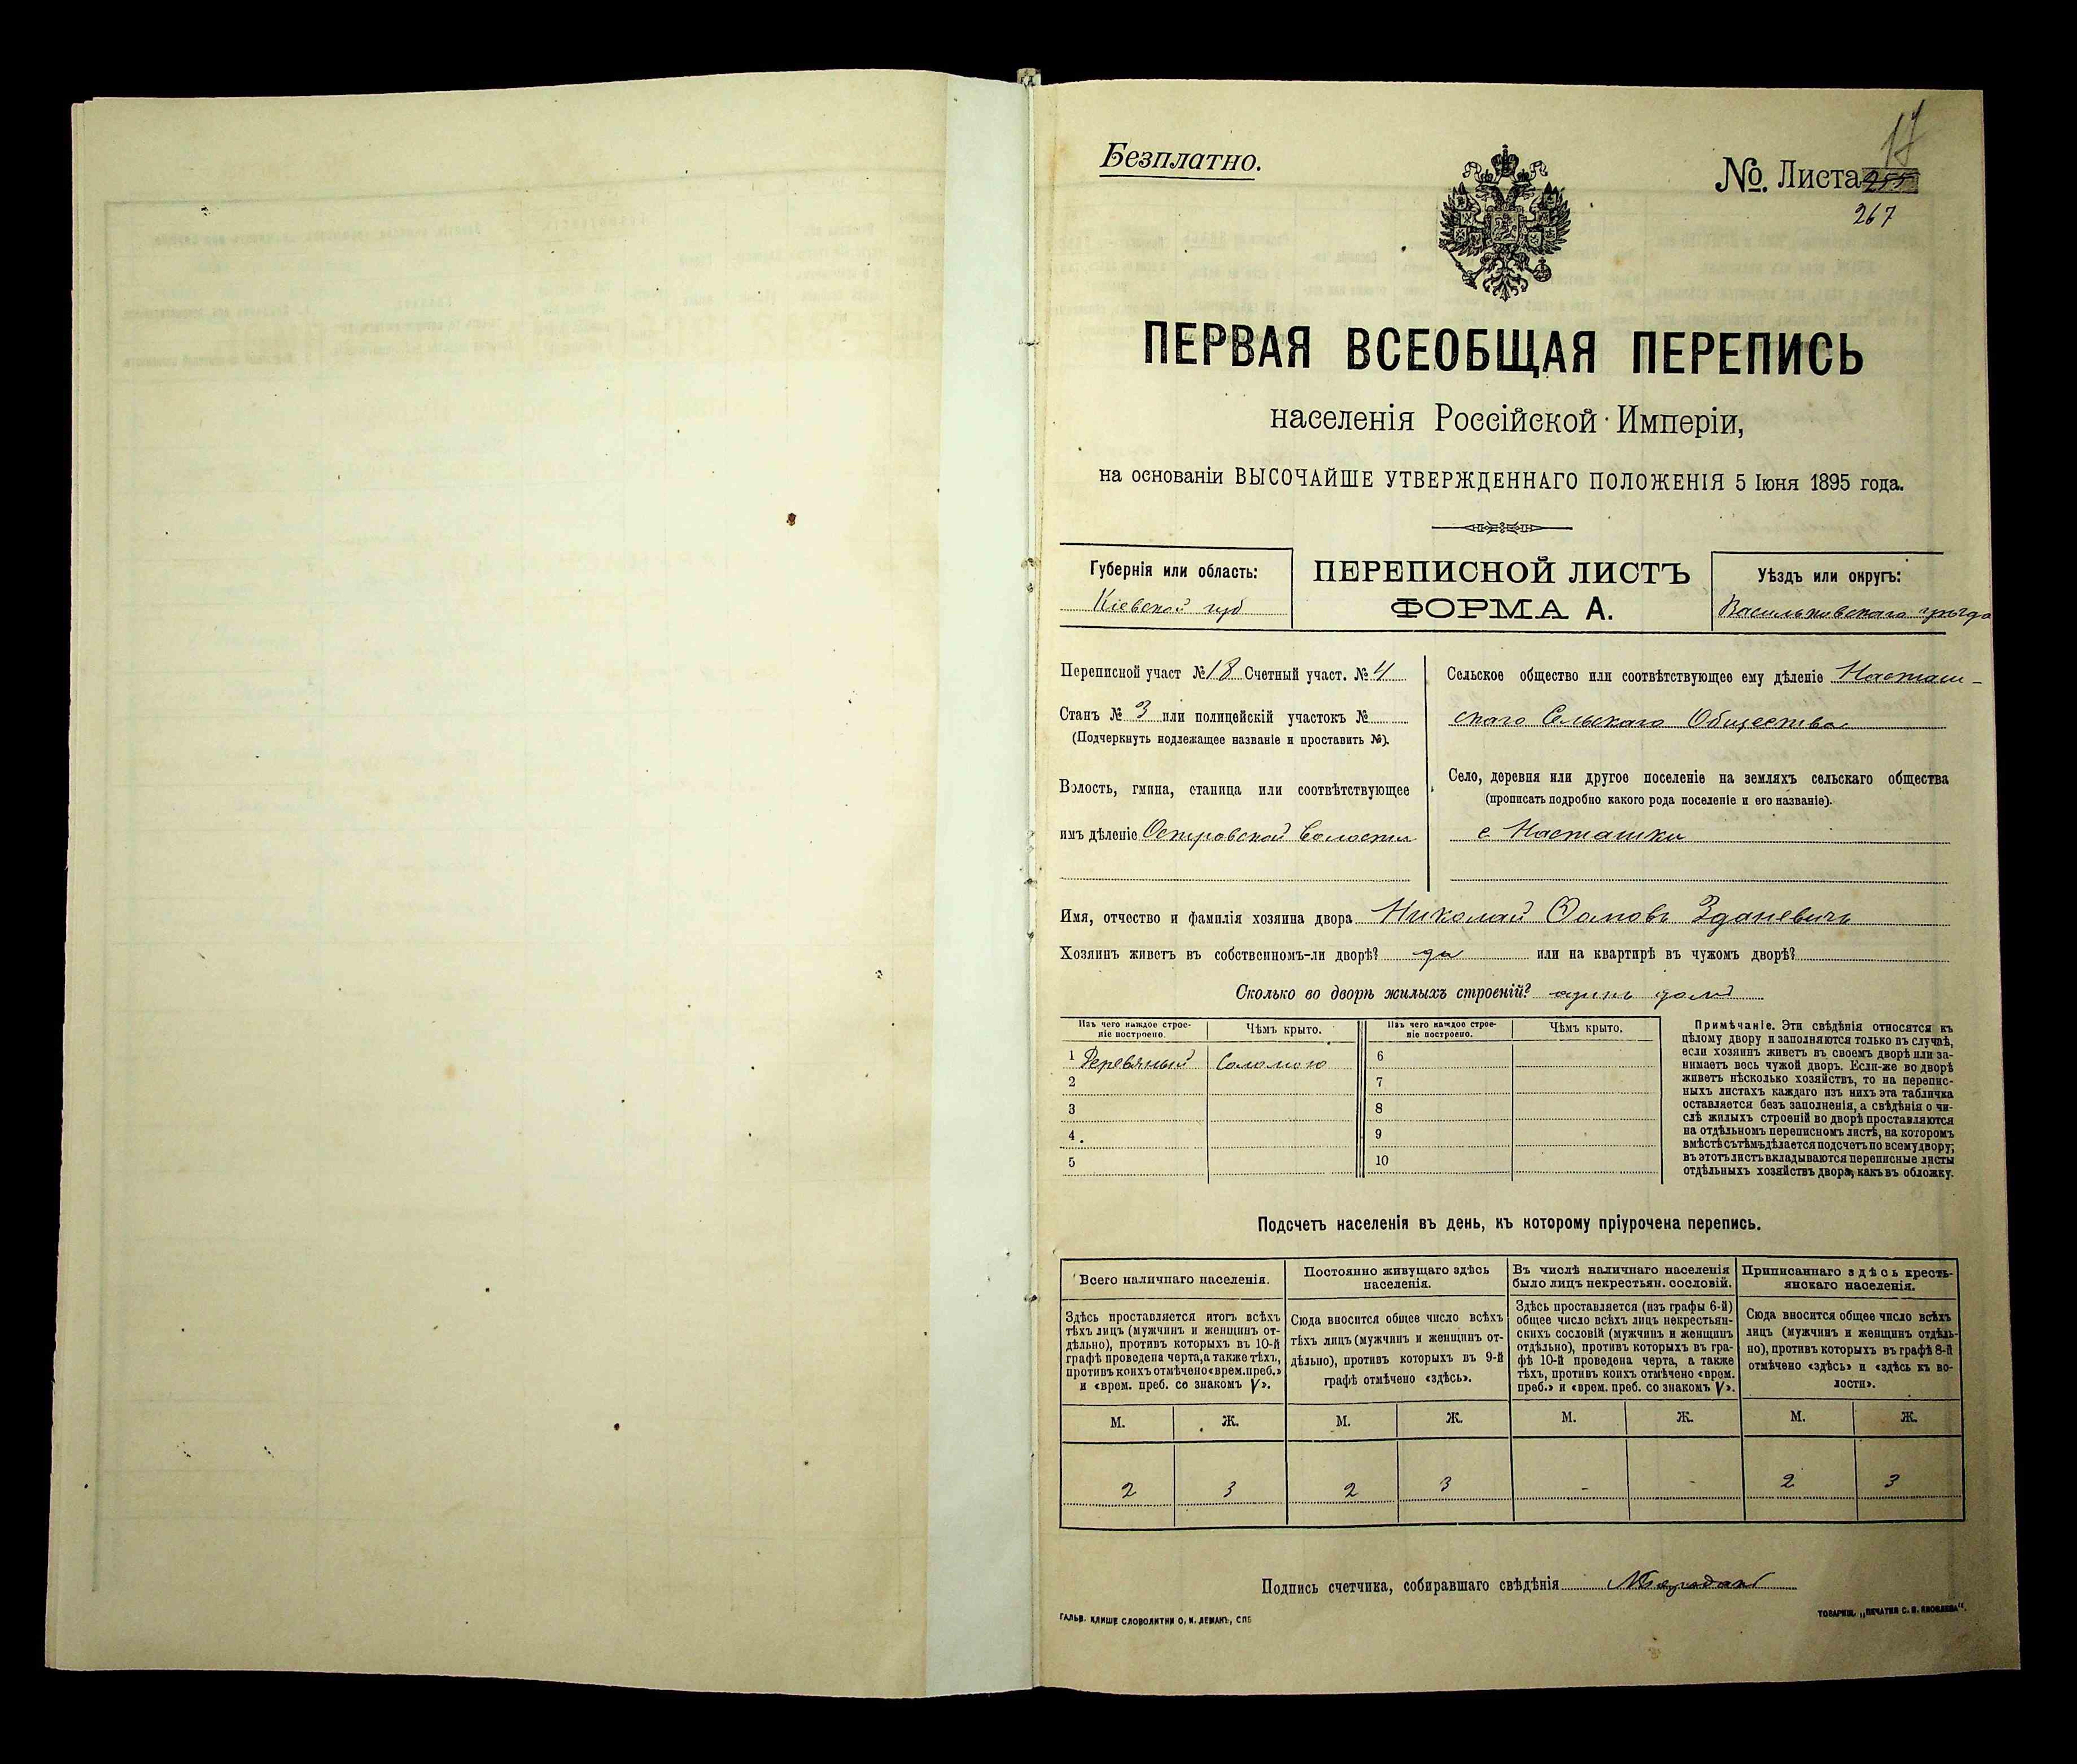 Безплатно.
17
№. Листа
267
ПЕРВАЯ ВСЕОБЩАЯ ПЕРЕПИСЬ
населенія Россійской Имперіи,
на основаніи ВЫСОЧАЙШЕ УТВЕРЖДЕННАГО ПОЛОЖЕНІЯ 5 Іюня 1895 года.
Губернія или область:
Кіевской губ
ПЕРЕПИСНОЙ ЛИСТЪ
ФОРМА А.
Уѣздъ или округъ:
Васильковскаго уѣзда
Переписной участ №18 Счетный участ. №4
Станъ № 3 или полицейскій участокъ №
(Подчеркнуть подлежащее названіе и проставить №).
Волость, гмина, станица или соотвѣтствующее
имъ дѣленіе Островской Волости
Сельское общество или соотвѣтствующее ему дѣленіе Насташ-
скаго Сельскаго Общества
Село, деревня или другое поселеніе на земляхъ сельскаго общества
(прописать подробно какого рода поселеніе и его названіе).
с Насташки
Имя, отчество и фамилія хозяина двора Николай Зданевичъ
Хозяинъ живетъ въ собственномъ-ли дворѣ? да или на квартирѣ въ чужомъ дворѣ?
Сколько во дворѣ жилыхъ строеній? одинъ домъ
Изъ чего каждое строе-
ніе построено.
Чѣмъ крыто.
1 Деревяный Соломою
2
3
4.
5
Изъ чего каждое строе-
ніе построено.
Чѣмъ крыто.
6
7
8
9
10
Примѣчаніе. Эти свѣдѣнія относятся къ
цѣлому двору и заполняются только въ случаѣ,
если хозяинъ живетъ въ своемъ дворѣ или за-
нимаетъ весь чужой дворъ. Если-же во дворѣ
живетъ нѣсколько хозяйствъ, то на перепис-
ныхъ листахъ каждаго изъ нихъ эта табличка
оставляется безъ заполненія, а свѣдѣнія о чи-
слѣ жилыхъ строеній во дворѣ проставляются
на отдѣльномъ переписномъ листѣ, на которомъ
вмѣстѣ съ тѣмъ дѣлается подсчетъ по всему двору;
въ этотъ листъ вкладываются переписные листы
отдѣльныхъ хозяйствъ двора, какъ въ обложку.
Подсчетъ населенія въ день, къ которому пріурочена перепись.
Всего наличнаго населенія.
Здѣсь проставляется итогъ всѣхъ
тѣхъ лицъ (мужчинъ и женщинъ от-
дѣльно), противъ которыхъ въ 10-й
графѣ проведена черта, а также тѣхъ,
противъ коихъ отмѣчено «врем. преб.»
и «врем. преб. со знакомъ V».
М. Ж.
2 3
Постоянно живущаго здѣсь
населенія.
Сюда вносится общее число всѣхъ
тѣхъ лицъ (мужчинъ и женщинъ от-
дѣльно), противъ которыхъ въ 9-й
графѣ отмѣчено «здѣсь».
М. Ж.
2 3
Въ числѣ наличнаго населенія
было лицъ некрестьян. сословій.
Здѣсь проставляется (изъ графы 6-й)
общее число всѣхъ лицъ некрестьян-
скихъ сословій (мужчинъ и женщинъ
отдѣльно), противъ которыхъ въ гра-
фѣ 10-й проведена черта, а также
тѣхъ, противъ коихъ отмѣчено «врем.
преб.» и «врем. преб. со знакомъ V».
М. Ж.
- -
Приписаннаго здѣсь кресть-
янскаго населенія.
Сюда вносится общее число всѣхъ
лицъ (мужчинъ и женщинъ отдѣль-
но), противъ которыхъ въ графѣ 8-й
отмѣчено «здѣсь» и «здѣсь къ во-
лости».
М. Ж.
2 3
Подпись счетчика, собиравшаго свѣдѣнія
ГАЛЬВ. КЛИШЕ СЛОВОЛИТНИ О. И. ЛЕМАНЪ, СПБ
ТОВАРИЩ. „ПЕЧАТНЯ С. П. ЯКОВЛЕВА".